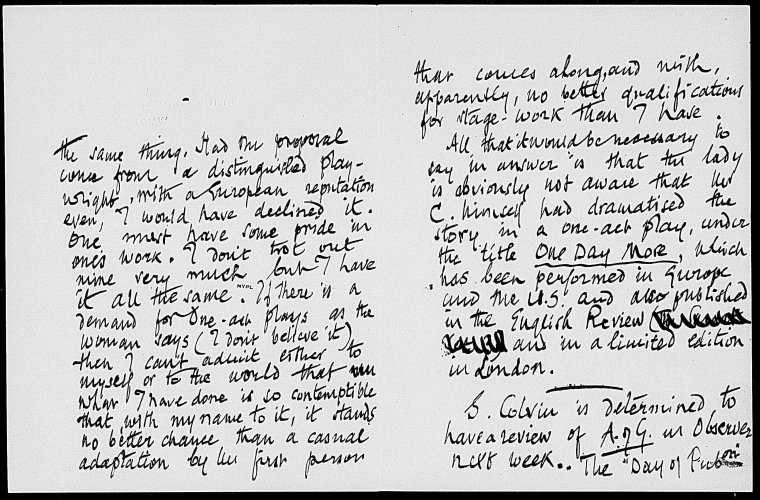 the same thing. Had the proposal
come from a distinguished play-
wright, with a European reputation
even, I would have declined it.
One must have some pride in
one's work. I don't trot out
mine very much but I have
it all the same. If there is a
demand for One-act plays as the
woman says (I don't believe it)
then I can't admit either to
myself or to the world that
what I have done is so contemptible
that, with my name to it, it stands
no better chance than a casual
adaptation by the first person
that comes along, and with,
apparently, no better qualifications
for stage-work than I have.
All that it would be necessary to
say in answer is that the lady
is obviously not aware that Mr
C. himself had dramatised the
story in a one-act play, under
the title One Day More, which
has been performed in Europe
and the U.S. and also published
in the English Review
and in a limited edition
in London.
S. Colvin is determined to
have a review of A. of G. in Observer
next week.. The "Day of Pubon"